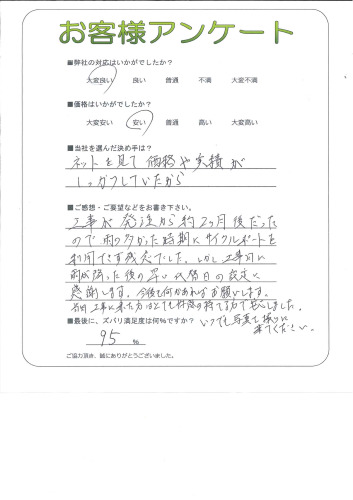 お客様アンケート
■弊社の対応はいかがでしたか？
大変良い 良い 普通 不満 大変不満
■価格はいかがでしたか？
大変安い 安い 普通 高い 大変高い
■当社を選んだ決め手は？
ネットを見て価格や実績が
しっかりしていたから
■ご感想・ご要望などをお書き下さい。
工事が発注から約2ヶ月後だった
ので雨の多かった時期にサイクルポートを
利用できず残念でした。しかし工事日に
雨が降った後の早い代替日の設定に
感謝します。今後も何かあればお願いします。
当日工事に来た方はとても好感の持てる方で安心しました。
■最後に、ズバリ満足度は何%ですか？ いつでも写真を撮りに
来てください。
95 %
ご協力頂き、誠にありがとうございました。